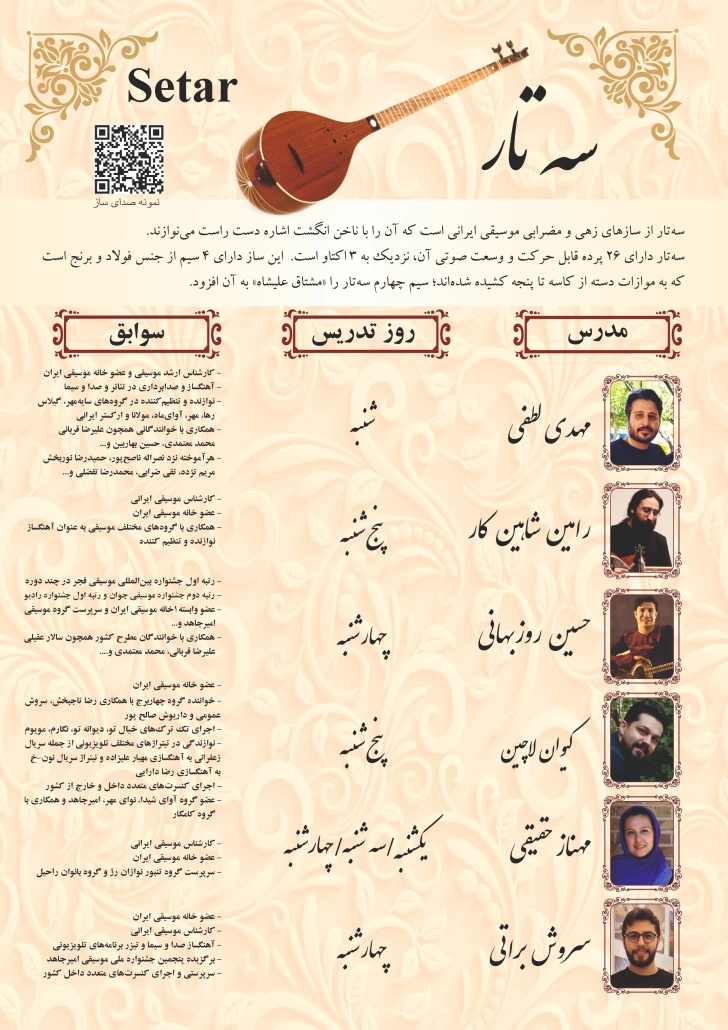 Setar
سه تار
نمونه صدای ساز
سه‌تار از سازهای زهی و مضرابی موسیقی ایرانی است که آن را با ناخن انگشت اشاره دست راست می‌نوازند.
سه‌تار دارای ۲۶ پرده قابل حرکت و وسعت صوتی آن، نزدیک به ۳ اکتاو است. این ساز دارای ۴ سیم از جنس فولاد و برنج است
که به موازات دسته از کاسه تا پنجه کشیده شده‌اند؛ سیم چهارم سه‌تار را «مشتاق علیشاه» به آن افزود.
مدرس
روز تدریس
سوابق
مهدی لطفی
شنبه
- کارشناس ارشد موسیقی و عضو خانه موسیقی ایران
- آهنگساز و صدابرداری در تئاتر و صدا و سیما
- نوازنده و تنظیم‌کننده در گروه‌های سایه‌مهر، گیلاس
رها، مهر، آوای‌ماه، مولانا و ارکستر ایرانی
- همکاری با خوانندگانی همچون علیرضا قربانی
محمد معتمدی، حسین بهاربین و...
- هنرآموخته نزد نصراله ناصح‌پور، حمیدرضا نوربخش
مریم نژده، تقی ضرابی، محمدرضا تفضلی و...
رامین شاهین کار
پنج شنبه
- کارشناس موسیقی ایرانی
- عضو خانه موسیقی ایران
- همکاری با گروه‌های مختلف موسیقی به عنوان آهنگساز
نوازنده و تنظیم کننده
حسین روزبهانی
چهارشنبه
- رتبه اول جشنواره بین‌المللی موسیقی فجر در چند دوره
- رتبه دوم جشنواره موسیقی جوان و رتبه اول جشنواره رادیو
- عضو وابسته ۱خانه موسیقی ایران و سرپرست گروه موسیقی
امیرجاهد و...
- همکاری با خوانندگان مطرح کشور همچون سالار عقیلی
علیرضا قربانی، محمد معتمدی و....
کیوان لاچین
پنج شنبه
- عضو خانه موسیقی ایران
- خواننده گروه چهاربرج با همکاری رضا تاجبخش، سروش
عمومی و داریوش صالح پور
- اجرای تک ترک‌های خیال تو، دیوانه تو، نگارم، مویوم
- نوازندگی در تیتراژهای مختلف تلویزیونی از جمله سریال
زعفرانی به آهنگسازی مهیار علیزاده و تیتراژ سریال نون-خ
به آهنگسازی رضا دارایی
- اجرای کنسرت‌های متعدد داخل و خارج از کشور
- عضو گروه آوای شیدا، نوای مهر، امیرجاهد و همکاری با
گروه کامکار
مهناز حقیقی
یکشنبه/سه شنبه/چهارشنبه
- کارشناس موسیقی ایرانی
- عضو خانه موسیقی ایران
- سرپرست گروه تنبور نوازان رژ و گروه بانوان راحیل
سروش براتی
چهارشنبه
- عضو خانه موسیقی ایران
- کارشناس موسیقی ایرانی
- آهنگساز صدا و سیما و تیزر برنامه‌های تلویزیونی
- برگزیده پنجمین جشنواره ملی موسیقی امیرجاهد
- سرپرستی و اجرای کنسرت‌های متعدد داخل کشور